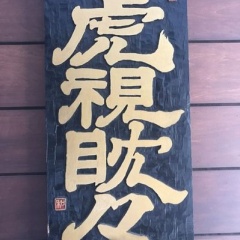 虎視眈々